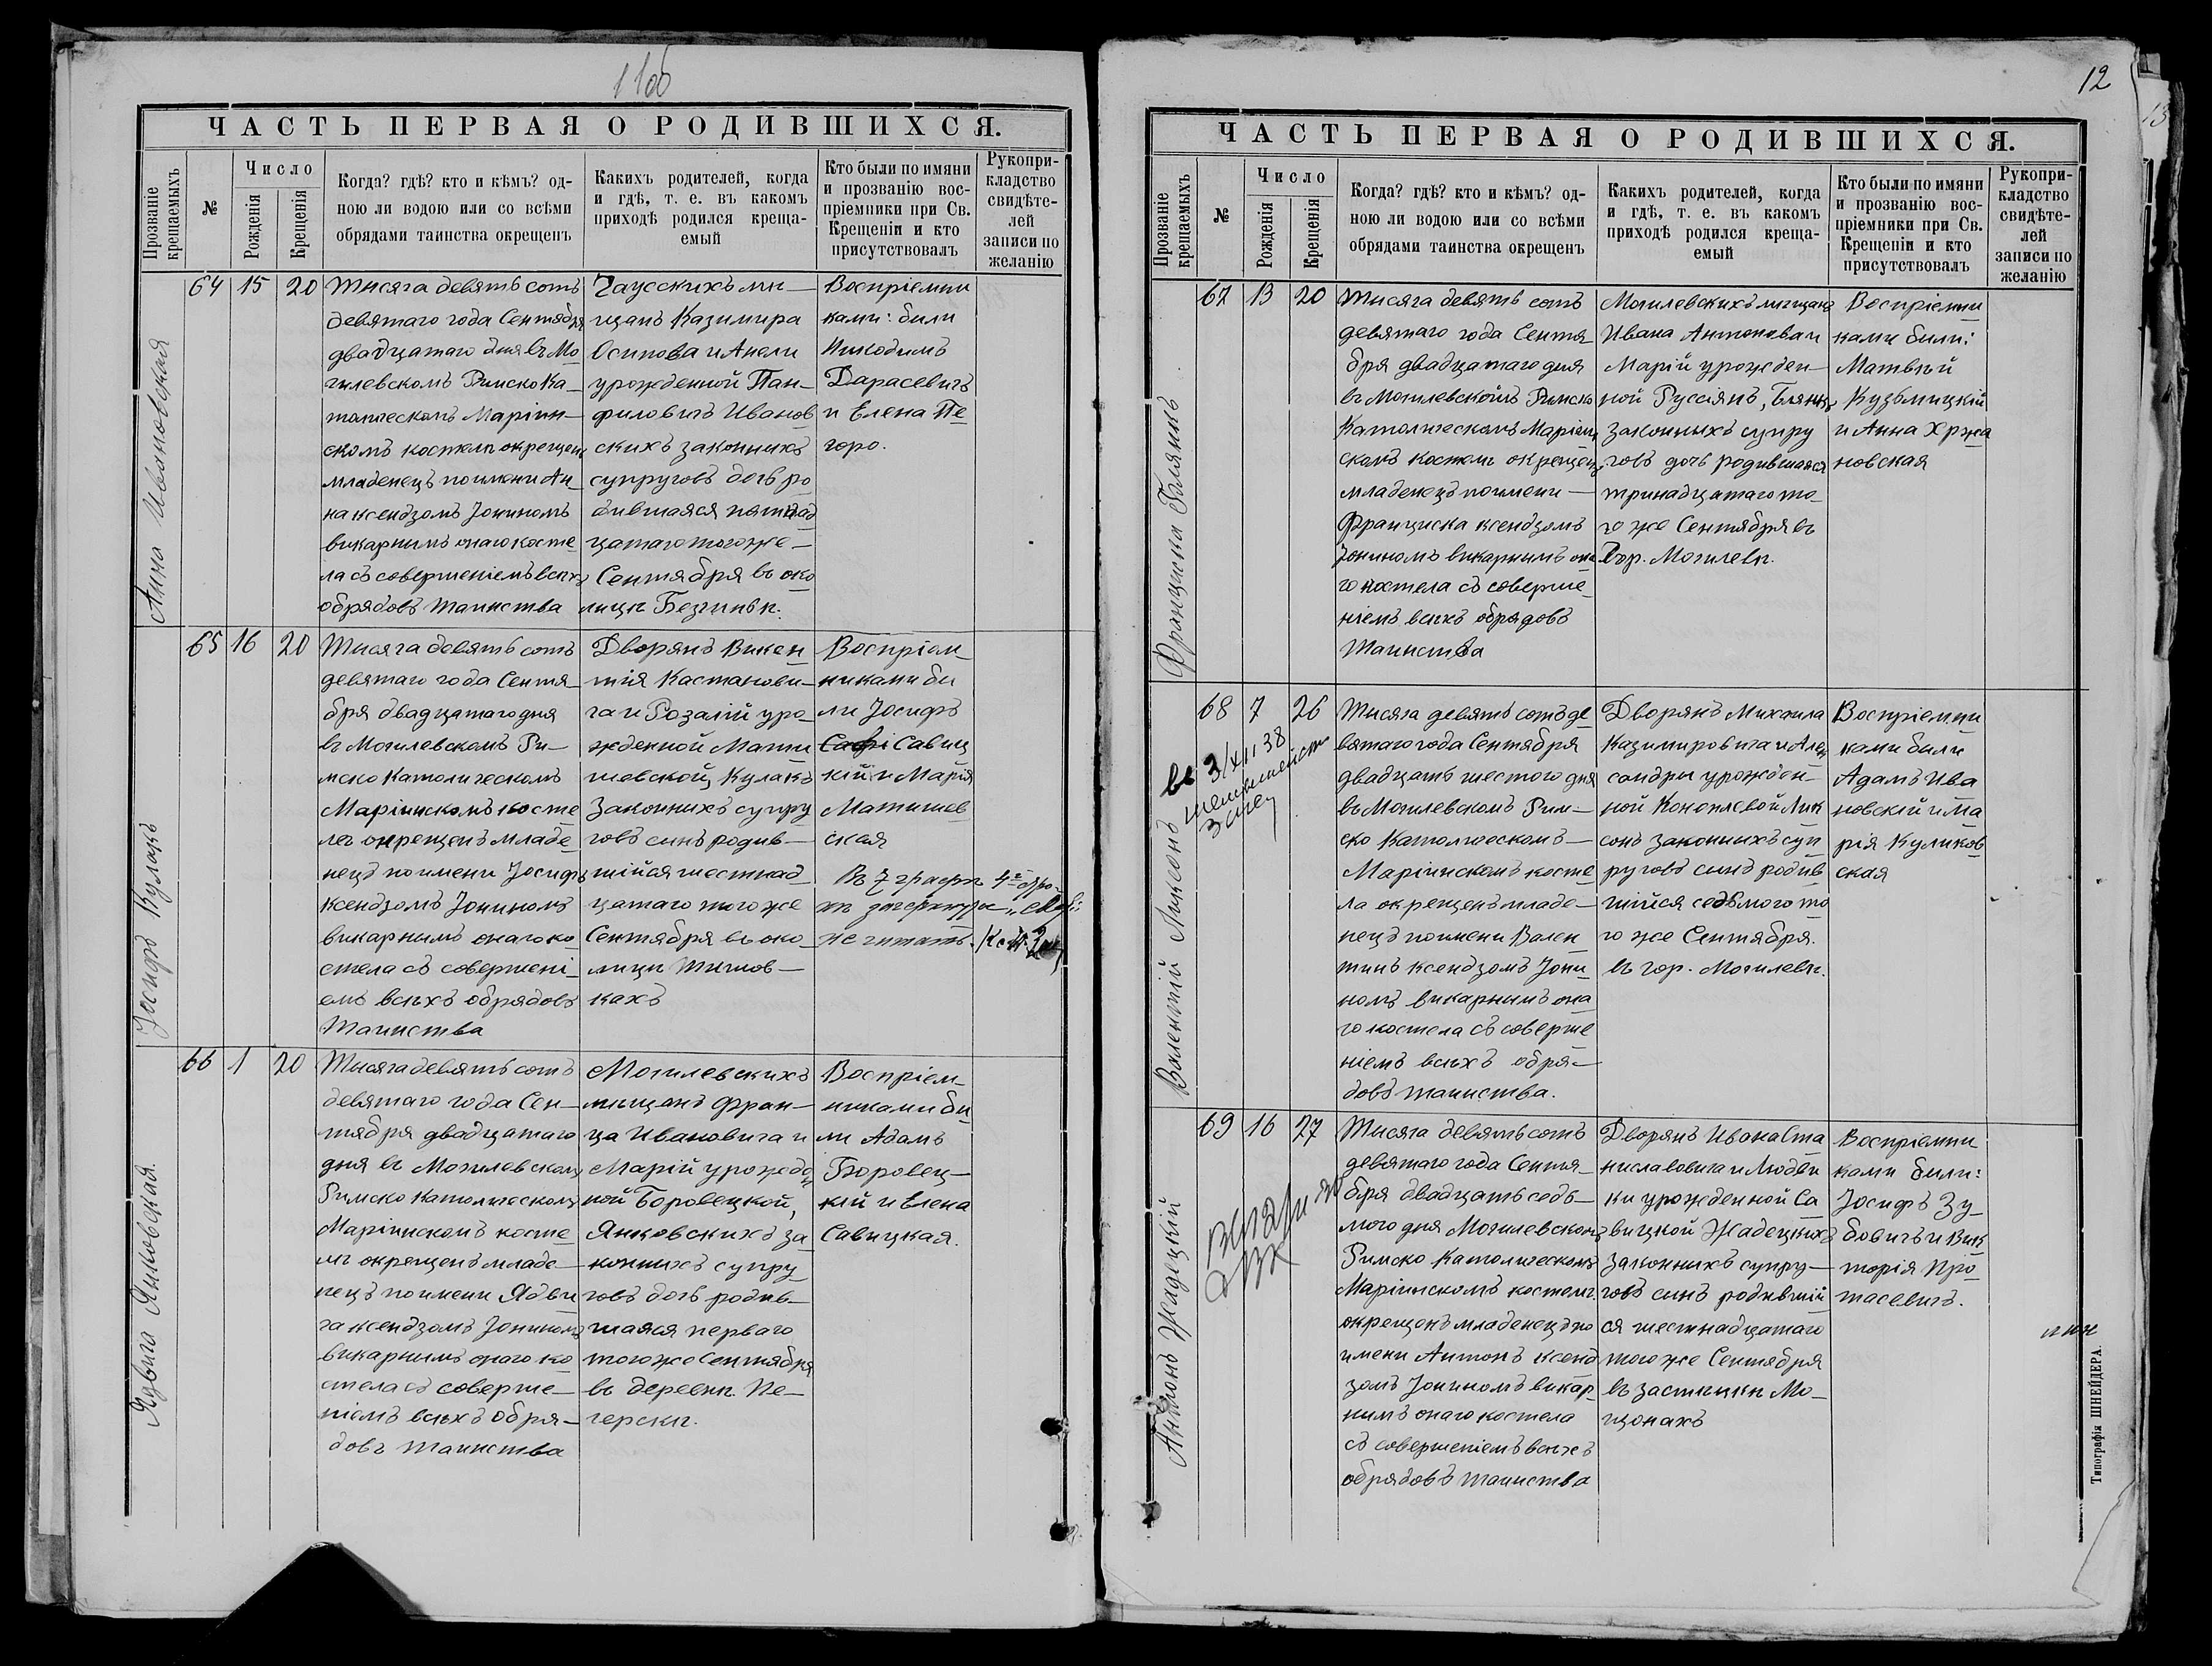 11об
ЧАСТЬ ПЕРВАЯ О РОДИВШИХСЯ.
Прозваніе крещаемыхъ
№
Число
Рожденія
Крещенія
Когда? гдѣ? кто и кѣмъ? од-
ною ли водою или со всѣми
обрядами таинства окрещенъ
Какихъ родителей, когда
и гдѣ, т. е. въ какомъ
приходѣ родился креща-
емый
Кто были по имяни
и прозванію вос-
пріемники при Св.
Крещеніи и кто
присутствовалъ
Рукопри-
кладство
свидѣте-
лей
записи по
желанію
Анна Ивановская
64 15 20
Тысяча девять сотъ
девятаго года Сентября
двадцатаго дня въ Мо
гилевскомъ Римско Ка-
толическомъ Маріин-
скомъ костелѣ окрещенъ
младенецъ по имени Ан-
на ксендзомъ Іониномъ
викарнымъ онаго косте
ла съ совершеніемъ всѣхъ
обрядовъ таинства
Чаусскихъ мѣ-
щанъ Казимира
Осипова и Анели
урожденной Пан-
филовичъ Иванов
скихъ законныхъ
супруговъ дочь ро
дившаяся пятнад
цатаго того же
Сентября въ око
лицѣ Безчинье.
Воспріемни
ками: были
Никодимъ
Дарасевичъ
и Елена Пе
горо.
Іосифъ Кулакъ
65 16 20
Тысяча девять сотъ
девятаго года Сентя-
бря двадцатаго дня
въ Могилевскомъ Ри-
мско Католическомъ
Маріинскомъ косте
лѣ окрещенъ младе
нецъ по имени Іосифъ
ксендзомъ Іониномъ
викарнымъ онаго ко
стела съ совершені
емъ всѣхъ обрядовъ
Таинства
Дворянъ Викен
тія Кастанови-
ча и Розаліи уро-
жденной Мати
шовской, Кулакъ
Законныхъ супру
говъ сынъ родив-
шійся шестнад
цатаго того же
Сентября въ око-
лицѣ Тишов-
кахъ
Воспріем-
никами бы
ли Іосифъ
Савиц
кій и Марія
Матишев
ская
Въ 7 графѣ 4
не читать.
Ядвига Янковская.
66 1 20
Тысяча девять сотъ
девятаго года Сен-
тября двадцатаго
дня въ Могилевскомъ
Римско Католическомъ
Маріинскомъ косте
лѣ окрещенъ младе-
нецъ по имени Ядви
га ксендзомъ Іониномъ
викарнымъ онаго ко
стела съ соверше-
ніемъ всѣхъ обря-
довъ таинства
Могилевскихъ
мѣщанъ Фран-
ца Ивановича и
Маріи урожден
ной Боровецкой,
Янковскихъ за
конныхъ супру
говъ дочь родив-
шаяся перваго
того же Сентября
въ деревнѣ Пе-
черскѣ.
Воспріем-
никами бы
ли Адамъ
Боровец-
кій и Елена
Савицкая.
12
ЧАСТЬ ПЕРВАЯ О РОДИВШИХСЯ.
Прозваніе крещаемыхъ
№
Число
Рожденія
Крещенія
Когда? гдѣ? кто и кѣмъ? од-
ною ли водою или со всѣми
обрядами таинства окрещенъ
Какихъ родителей, когда
и гдѣ, т. е. въ какомъ
приходѣ родился креща-
емый
Кто были по имяни
и прозванію вос-
пріемники при Св.
Крещеніи и кто
присутствовалъ
Рукопри-
кладство
свидѣте-
лей
записи по
желанію
Франциска
67 13 20
Тысяча девять сотъ
девятаго года Сентя
бря двадцатаго дня
въ Могилевскомъ Римско
Католическомъ Маріин
скомъ костелѣ окрещенъ
младенецъ по имени
Франциска ксендзомъ
Іониномъ викарнымъ она
го костела съ соверше
ніемъ всѣхъ обрядовъ
Таинства
Могилевскихъ мѣщанъ
Ивана Антонова и
Маріи урожден-
ной Руссіянъ,
законныхъ супру
говъ дочь родившаяся
тринадцатаго то
го же Сентября въ
гор. Могилевѣ.
Воспріемни
ками были:
Матвѣй
Кузьмицкій
и Анна Хржа
новская
Валентій Ликсонъ
68 7 26
Тысяча девять сотъ де
вятаго года Сентября
двадцать шестого дня
въ Могилевскомъ Рим-
ско Католическомъ
Маріинскомъ косте
ла окрещенъ младе-
нецъ по имени Вален
тинъ ксендзомъ Іони
номъ викарнымъ она
го костела съ соверше
ніемъ всѣхъ обря-
довъ таинства.
Дворянъ Михаила
Казимировича и Алек
сандры урожден-
ной Коноплевой Лик
сонъ законныхъ суп
руговъ сынъ родив
шійся седьмого то
го же Сентября.
въ гор. Могилевѣ.
Воспріемни
ками были
Адамъ Ива
новскій и Ма
рія Куликов
ская
Антонъ Жадецкій
69 16 27
Тысяча девять сотъ
девятаго года Сентя-
бря двадцать седь-
мого дня Могилевскомъ
Римско Католическомъ
Маріинскомъ костелѣ.
окрещенъ младенецъ по
имени Антонъ ксенд
зомъ Іониномъ викар-
нымъ онаго костела
съ совершеніемъ всѣхъ
обрядовъ таинства
Дворянъ Ивана Ста
ниславовича и Людви
ки урожденной Са
вицкой Жадецкихъ
законныхъ супру-
говъ сынъ родившій
ся шестнадцатаго
того же Сентября
въ застѣнкѣ Мо-
щонахъ
Воспріемни
ками были:
Іосифъ Зу-
бовичъ и Вик
торія Про
тасевичъ.
Типографія ШНЕЙДЕРА.